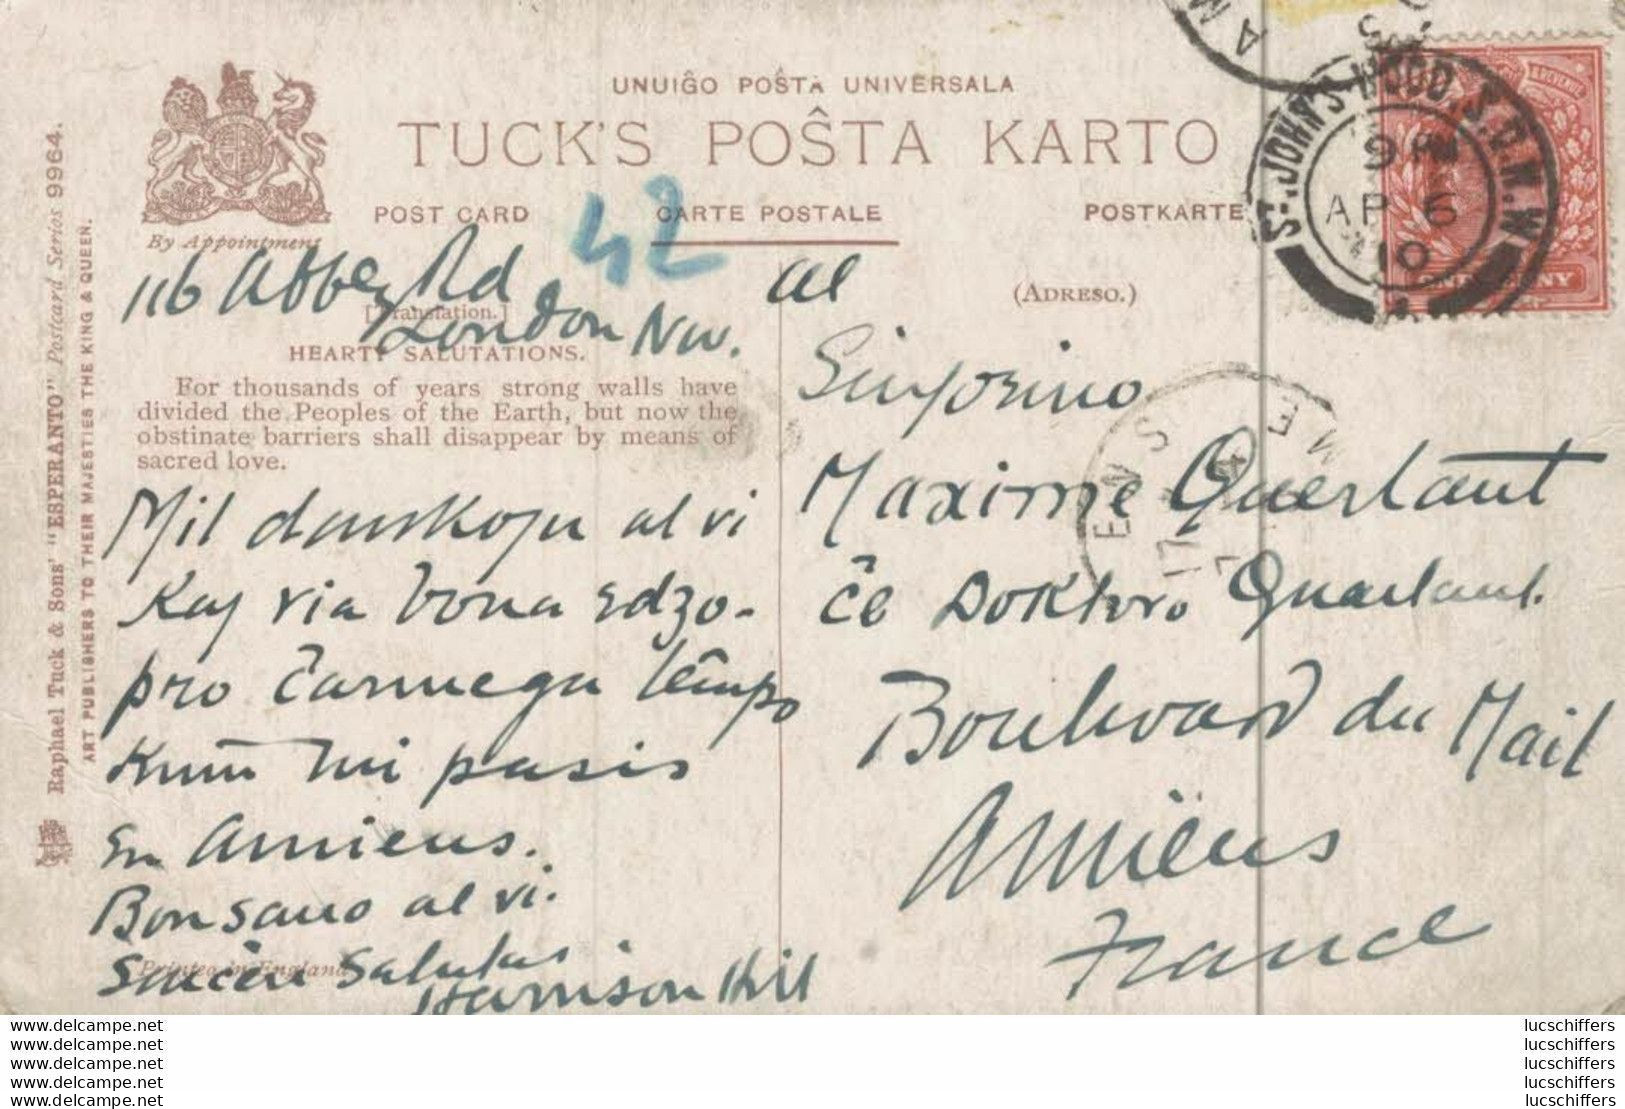 UNUIĜO POŜTA UNIVERSALA
TUCK'S POŜTA KARTO
POST CARD CARTE POSTALE POSTKARTE
By Appointment
42
(ADRESO.)
ST. JOHN'S WOOD. S.O. N.W.
AP 6
10
116 Abbey Rd
London NW.
[Translation.]
HEARTY SALUTATIONS.
For thousands of years strong walls have
divided the Peoples of the Earth, but now the
obstinate barriers shall disappear by means of
sacred love.
Mil dankojn al vi
Kaj via bona edzo-
pro ĉarmega tempo
Kiun mi pasis
en Amiens.
Bonsano al vi.
Sincera Salutas
Harrison Hill
Printed in England
al
Sinjorino
Maxime Quertant
ĉe Doktoro Quertant.
Boulevard du Mail
Amiens
France
Raphael Tuck & Sons' "ESPERANTO" Postcard Series 9964.
ART PUBLISHERS TO THEIR MAJESTIES THE KING & QUEEN.
www.delcampe.net
www.delcampe.net
www.delcampe.net
www.delcampe.net
www.delcampe.net
lucschiffers
lucschiffers
lucschiffers
lucschiffers
lucschiffers